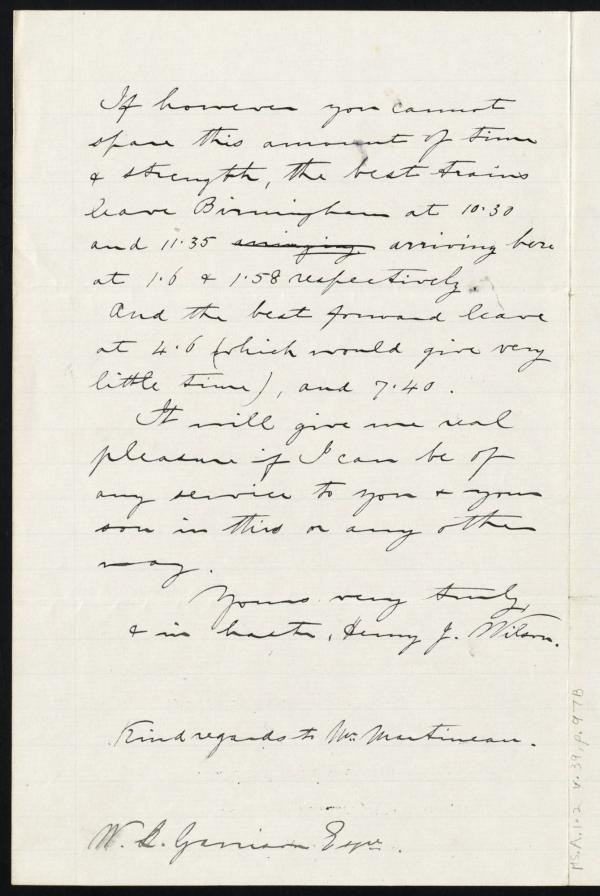 If however you cannot
spare this amount of time
& strength, the best trains
leave Birmingham at 10.30
and 11.35 arriving here
at 1.6 & 1.58 respectively.
And the best forward leave
at 4.6 (which would give very
little time), and 7.40.
It will give me real
pleasure if I can be of
any service to you & your
son in this or any other
way.
Yours very truly,
& in haste, Henry J. Wilson.
Kind regards to Mr. Martineau.
W. L. Garrison Esqre.
MS.A.1.2 v.39, p.97B